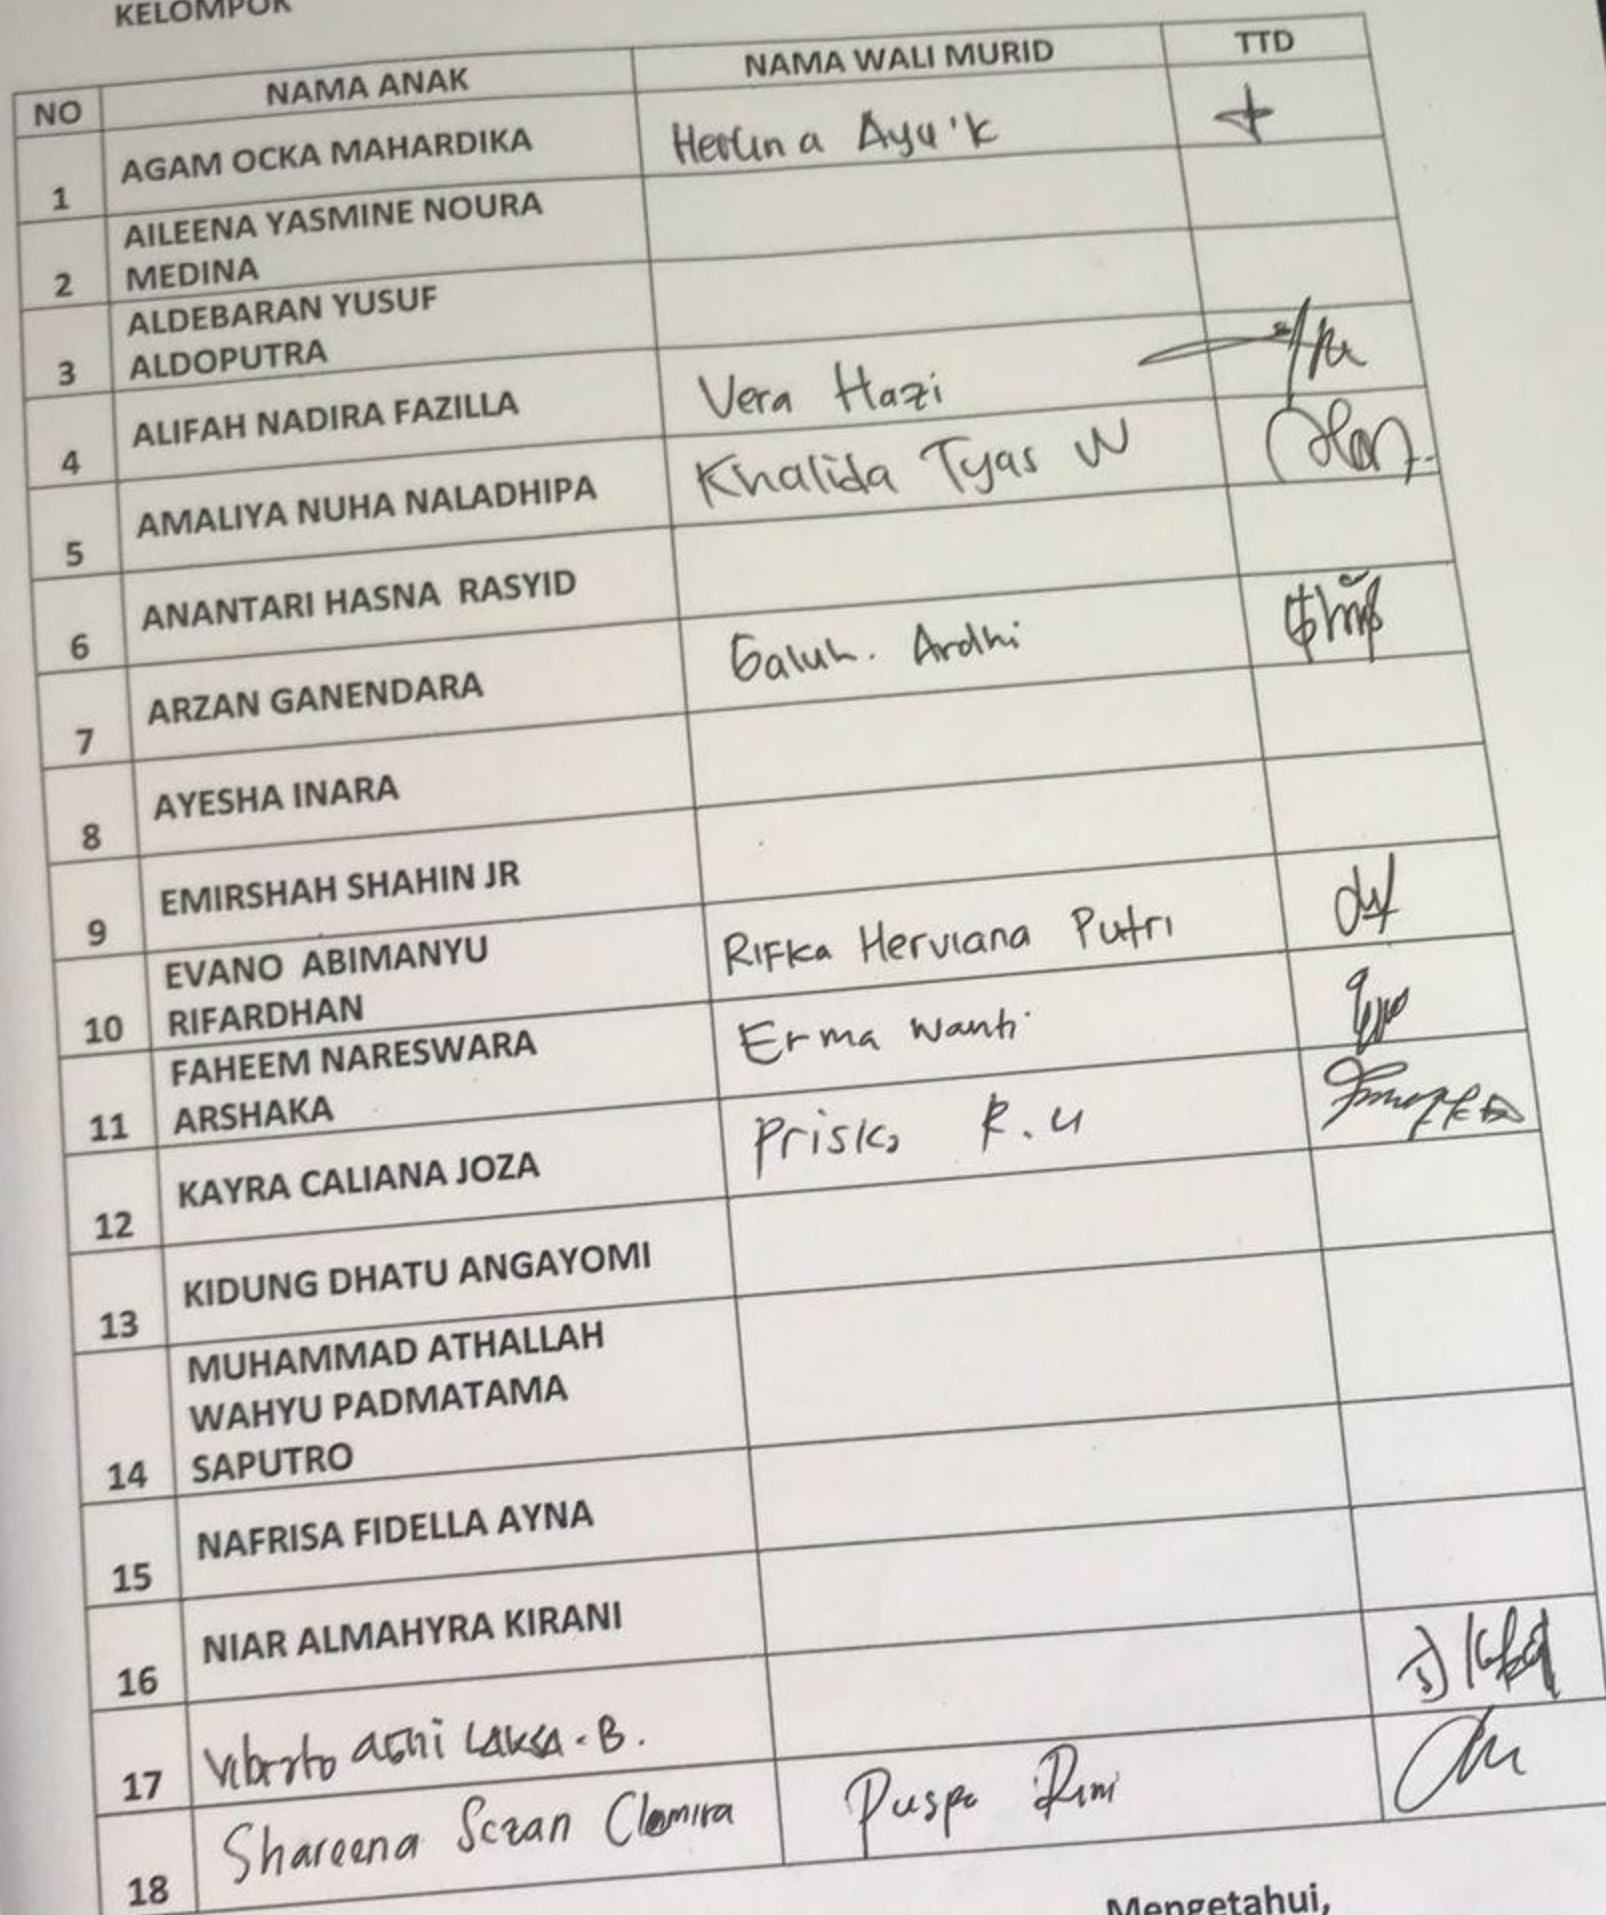 KELOMPOK
NO NAMA ANAK NAMA WALI MURID TTD
1 AGAM OCKA MAHARDIKA Herlina Ayu'k
2 AILEENA YASMINE NOURA
MEDINA
3 ALDEBARAN YUSUF
ALDOPUTRA
4 ALIFAH NADIRA FAZILLA Vera Hazi
5 AMALIYA NUHA NALADHIPA Khalida Tyas W
6 ANANTARI HASNA RASYID
7 ARZAN GANENDARA Galuh. Ardhi
8 AYESHA INARA
9 EMIRSHAH SHAHIN JR
10 EVANO ABIMANYU
RIFARDHAN Rifka Herviana Putri
11 FAHEEM NARESWARA
ARSHAKA Erma Wanti
12 KAYRA CALIANA JOZA Priska R.U
13 KIDUNG DHATU ANGAYOMI
14 MUHAMMAD ATHALLAH
WAHYU PADMATAMA
SAPUTRO
15 NAFRISA FIDELLA AYNA
16 NIAR ALMAHYRA KIRANI
17 LAKSA.B.
18 Shareena Puspa
Mengetahui,